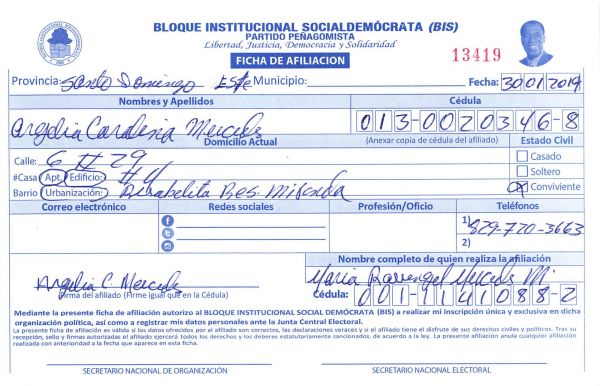 BLOQUE INSTITUCIONAL SOCIALDEMÓCRATA (BIS)
PARTIDO PEÑAGOMISTA
Libertad, Justicia, Democracia y Solidaridad
FICHA DE AFILIACION
13419
Provincia: Santo Domingo Este Municipio: Fecha: 30/01/2019
Nombres y Apellidos Cédula
Argelia Carolina Mercedes 013-0020346-8
Domicilio Actual (Anexar copia de cédula del afiliado) Estado Civil
Calle: 6 # 29 Casado
#Casa Apt. Edificio: # 4 Soltero
Barrio Urbanización: Res. Conviviente
Correo electrónico Redes sociales Profesión/Oficio Teléfonos
1) 829-720-3663
2)
Nombre completo de quien realiza la afiliación
Argelia C. Mercedes Maria Mercedes M.
Firma del afiliado (Firme igual que en la Cédula) Cédula: 001-1141088-2
Mediante la presente ficha de afiliación autorizo al BLOQUE INSTITUCIONAL SOCIAL DEMÓCRATA (BIS) a realizar mi inscripción única y exclusiva en dicha
organización política, así como a registrar mis datos personales ante la Junta Central Electoral.
La presente ficha de afiliación es válida si los datos ofrecidos por el afiliado son correctos, las declaraciones veraces y si el afiliado tiene el disfrute de sus derechos civiles y políticos. Tras su
recepción, sello y firmas autorizadas el afiliado ejercerá todos los derechos y los deberes estatutariamente sancionados, de acuerdo a la ley. La presente afiliación anula cualquier afiliación
realizada con anterioridad a la fecha que aparece en esta ficha.
SECRETARIO NACIONAL DE ORGANIZACIÓN SECRETARIO NACIONAL ELECTORAL